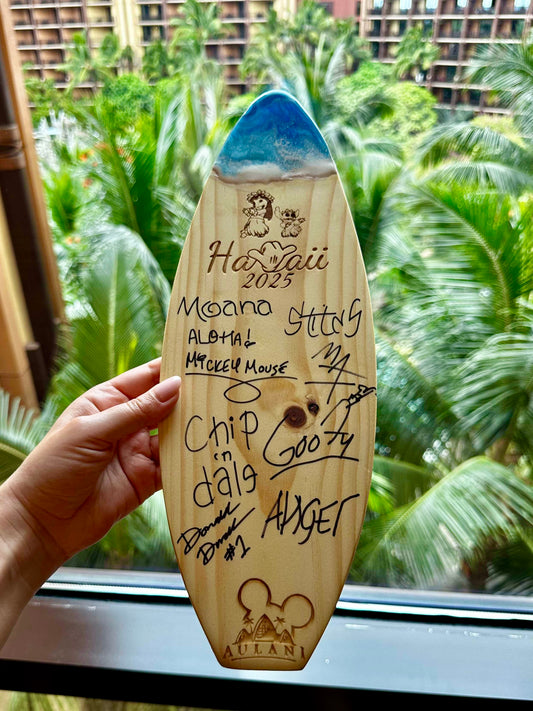 Hawaii
2025
Moana
ALOHA!
MiCKEY MOUSE
Chip
'n
dale
GOOFY
ANGEL
Donald
Duck
#1
AULANI